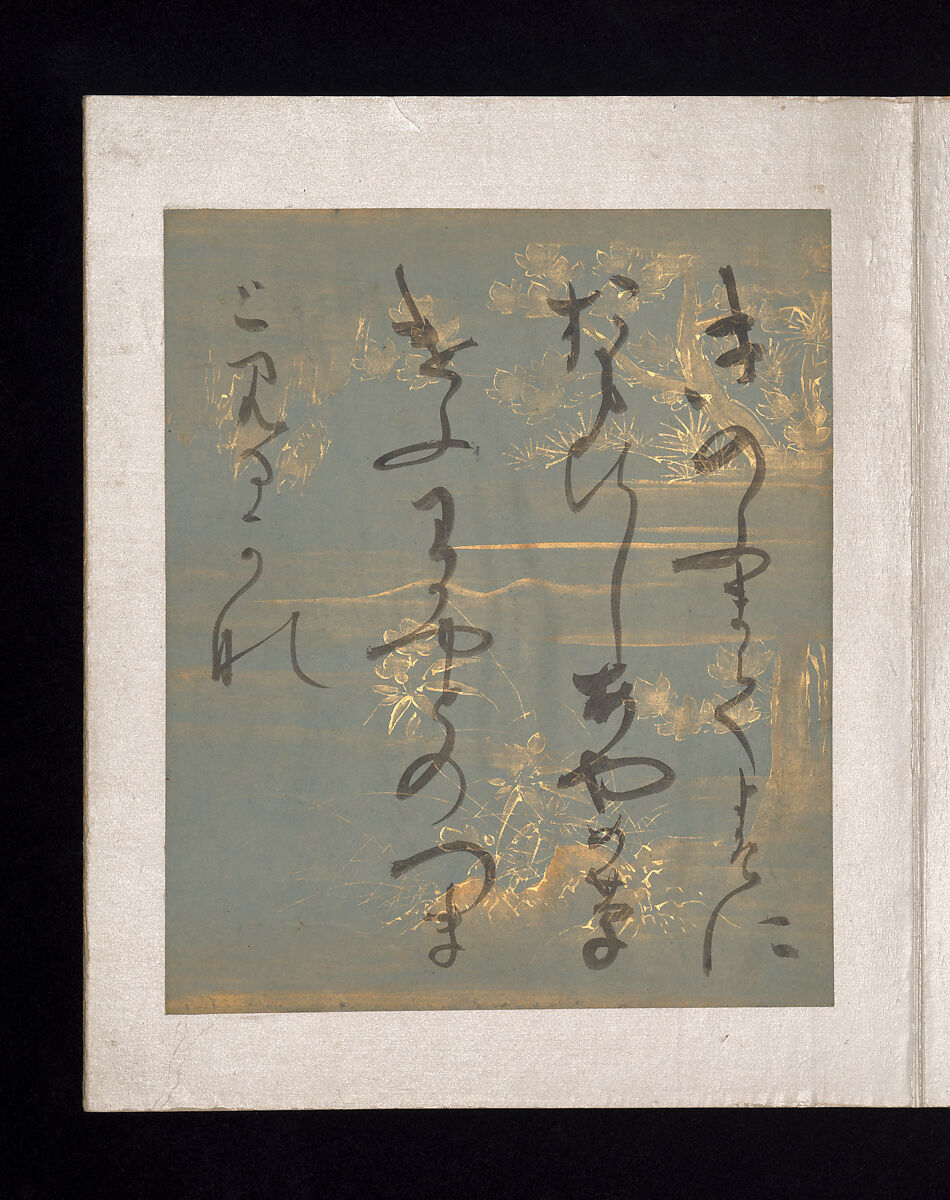 きのふまてよそに
おもひしあやめ草
けふわかやとのつま
と見るかな